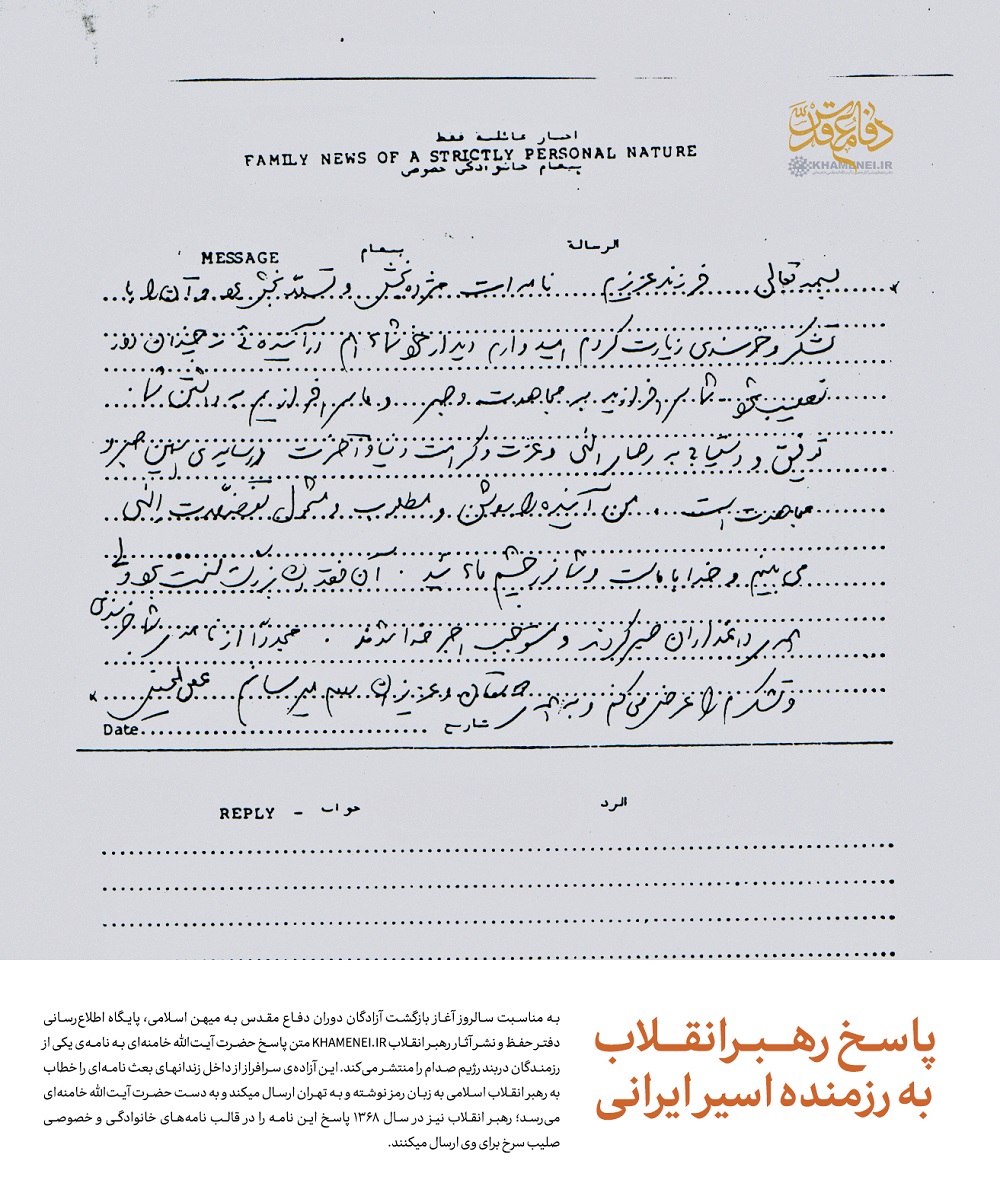 دفاع مقدس
KHAMENEI.IR
اخبار عائلية فقط
FAMILY NEWS OF A STRICTLY PERSONAL NATURE
پیغام خانوادگی خصوصی
الرسالة پیغام MESSAGE
بسمه تعالی فرزند عزیزم نامه‌ات مژده‌بخش و تسلی‌بخش بود و آن را با
تشکر و خرسندی زیارت کردم امیدوارم دیدار خود شما هم در آینده‌ئی نه چندان دور
نصیب شود شما سرافرازید به مجاهدت و صبر و ما سرافرازیم به داشتن شما
توفیق و دستیابی به رضای الهی و عزت و کرامت دنیا و آخرت در سایه‌ی همین صبر و
مجاهدت است من آینده را روشن و مطلوب و مشمول تفضلات الهی
می بینم و خدا با ماست و شما نور چشم مائید آن فقدان بزرگ سخت بود ولی
همه‌ی داغداران صبر کردند و مستوجب اجر خدا شدند مجدداً از نامه‌ی شما خرسندی
و تشکرم را عرض می کنم و به همه‌ی و عزیزان سلام میرسانم
Date تاریخ
الرد جواب - REPLY
پاسخ رهبر انقلاب
به رزمنده اسیر ایرانی
به مناسبت سالروز آغاز بازگشت آزادگان دوران دفاع مقدس به میهن اسلامی، پایگاه اطلاع‌رسانی
دفتر حفظ و نشر آثار رهبر انقلاب KHAMENEI.IR متن پاسخ حضرت آیت‌الله خامنه‌ای به نامه‌ی یکی از
رزمندگان دربند رژیم صدام را منتشر می‌کند. این آزاده‌ی سرافراز از داخل زندانهای بعث نامه‌ای را خطاب
به رهبر انقلاب اسلامی به زبان رمز نوشته و به تهران ارسال میکند و به دست حضرت آیت‌الله خامنه‌ای
می‌رسد؛ رهبر انقلاب نیز در سال ۱۳۶۸ پاسخ این نامه را در قالب نامه‌های خانوادگی و خصوصی
صلیب سرخ برای وی ارسال میکنند.